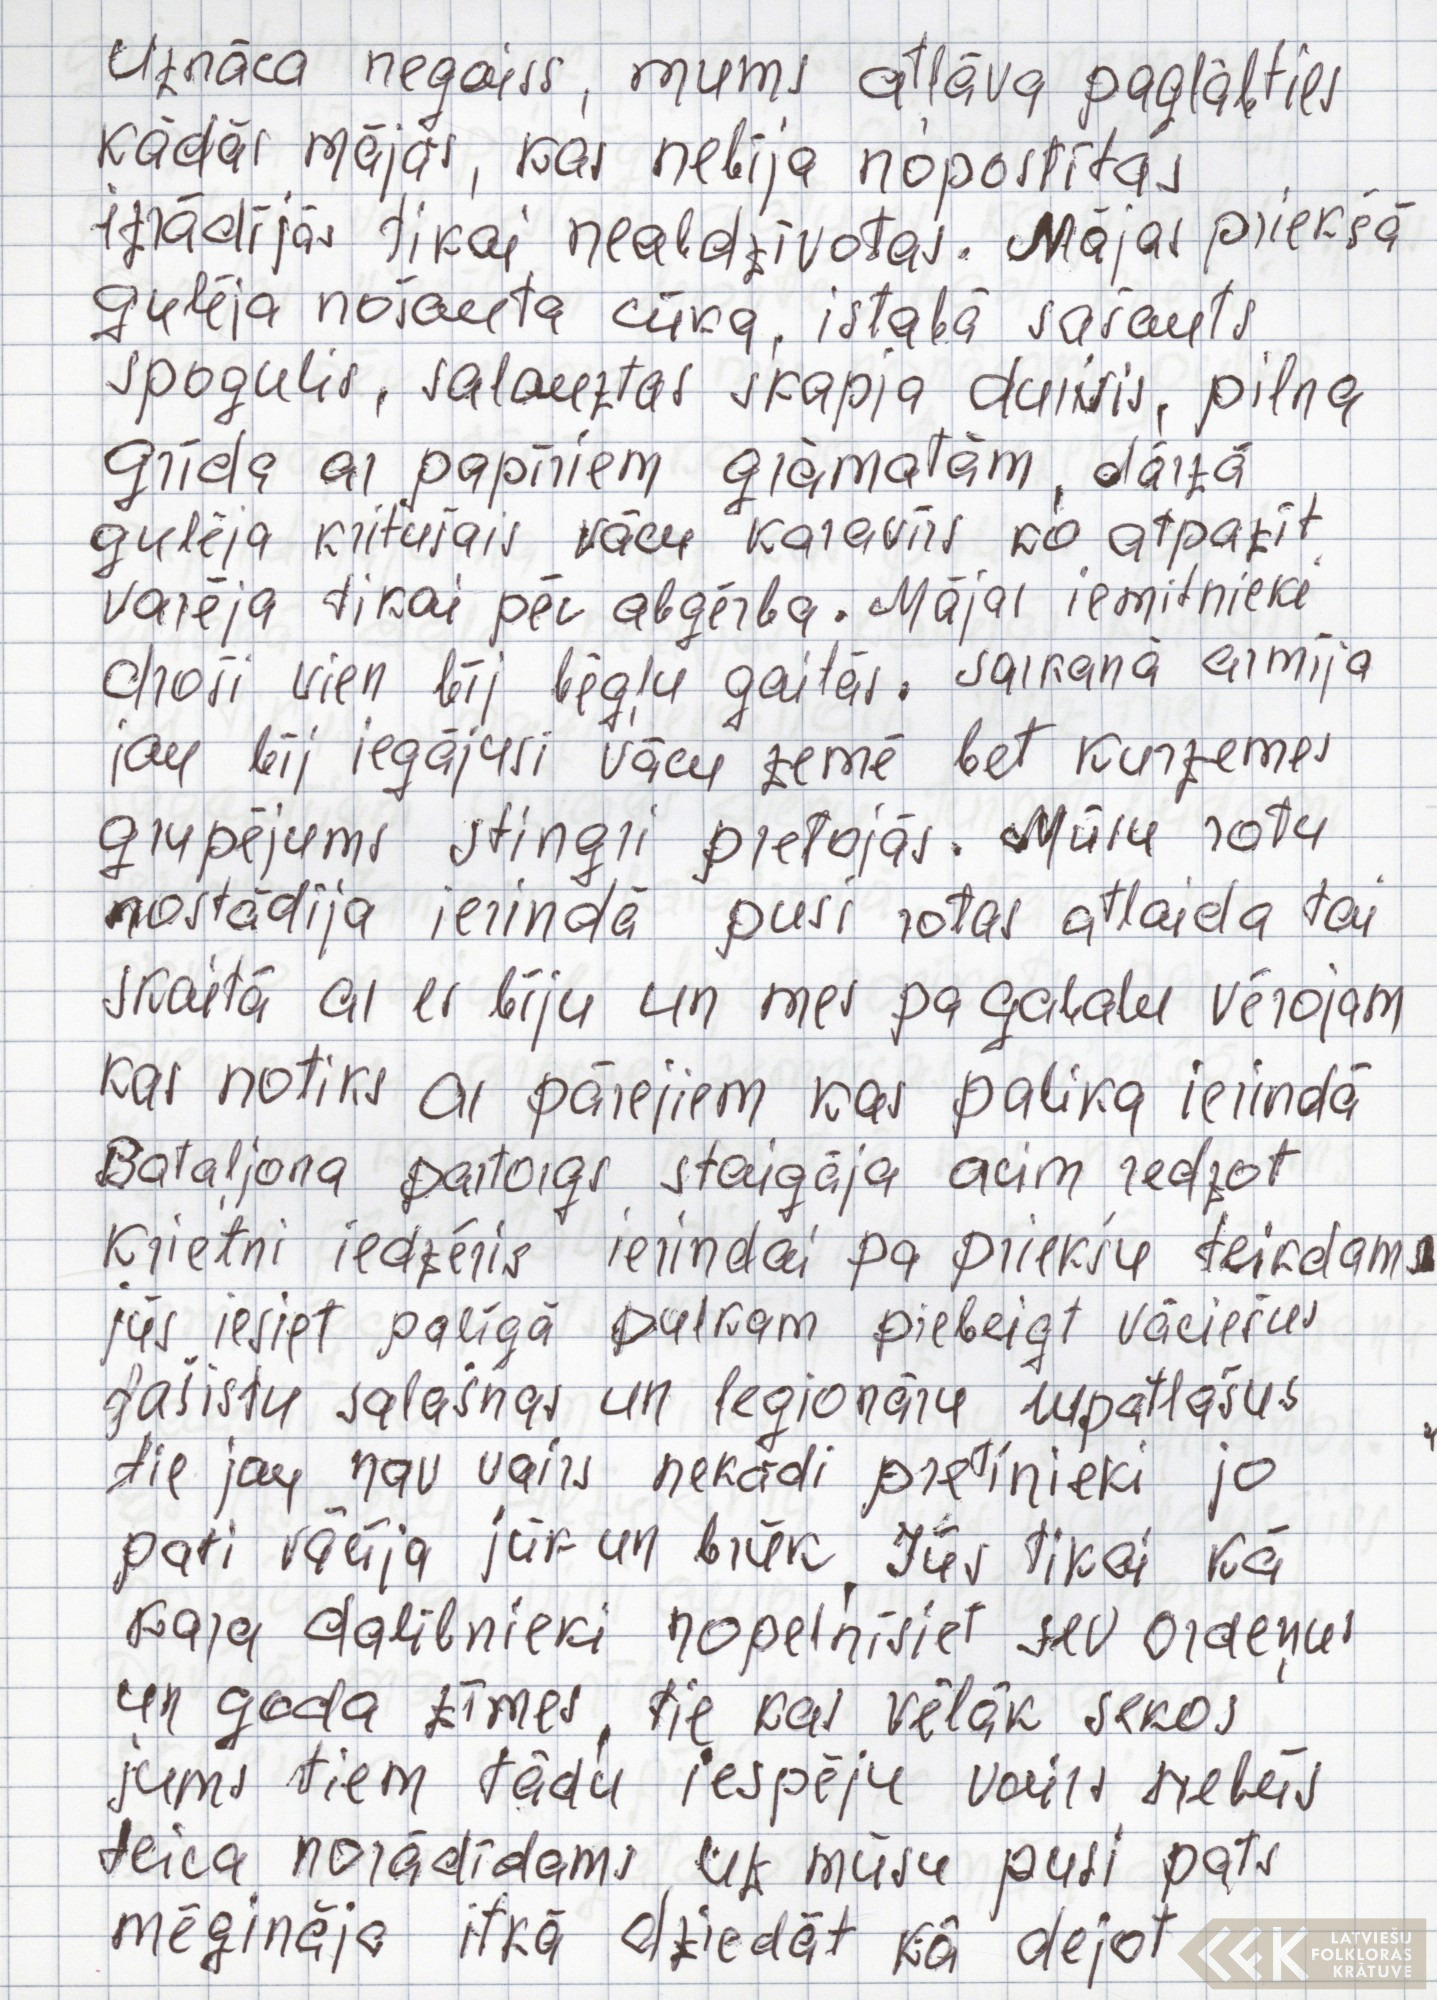 Uznāca negaiss, mums atļāva paglābties
kādās mājās, kas nebija nopostītas
izrādījās tikai neabdzīvotas. Mājas priekšā
gulēja nošauta cūka, istabā sašauts
spogulis, salauztas skapja durvis, pilna
grīda ar papīriem grāmatām, dārzā
gulēja kritušais vācu karavīrs ko atpazīt
varēja tikai pēc abģērba. Mājas iemītnieki
droši vien bij bēgļu gaitās. sarkanā armija
jau bij iegājusi vācu zemē bet kurzemes
grupējums stingri pretojās. Mūsu rotu
nostādīja ierindā pusi rotas atlaida tai
skaitā ar es biju un mes pa gabalu vērojam
kas notiks ar pārejiem kas palika ierindā
Bataljona partorgs staigāja acim redzot
krietni iedzēris ierindai pa priekšu teikdams
jūs iesiet palīgā pulkam piebeigt vāciešus
fašistu salašņas un leģionāru
tie jau nav vairs nekādi pretinieki jo
pati vācija jūk un brūk, Jūs tikai kā
kara dalībnieki nopelnīsiet sev ordeņus
un goda zīmes, tie kas vēlāk sekos
jums tiem tādu iespēju vairs nebūs
teica norādīdams uz mūsu pusi pats
mēģināja itkā dziedāt kā dejot
LATVIEŠU
FOLKLORAS
KRĀTUVE